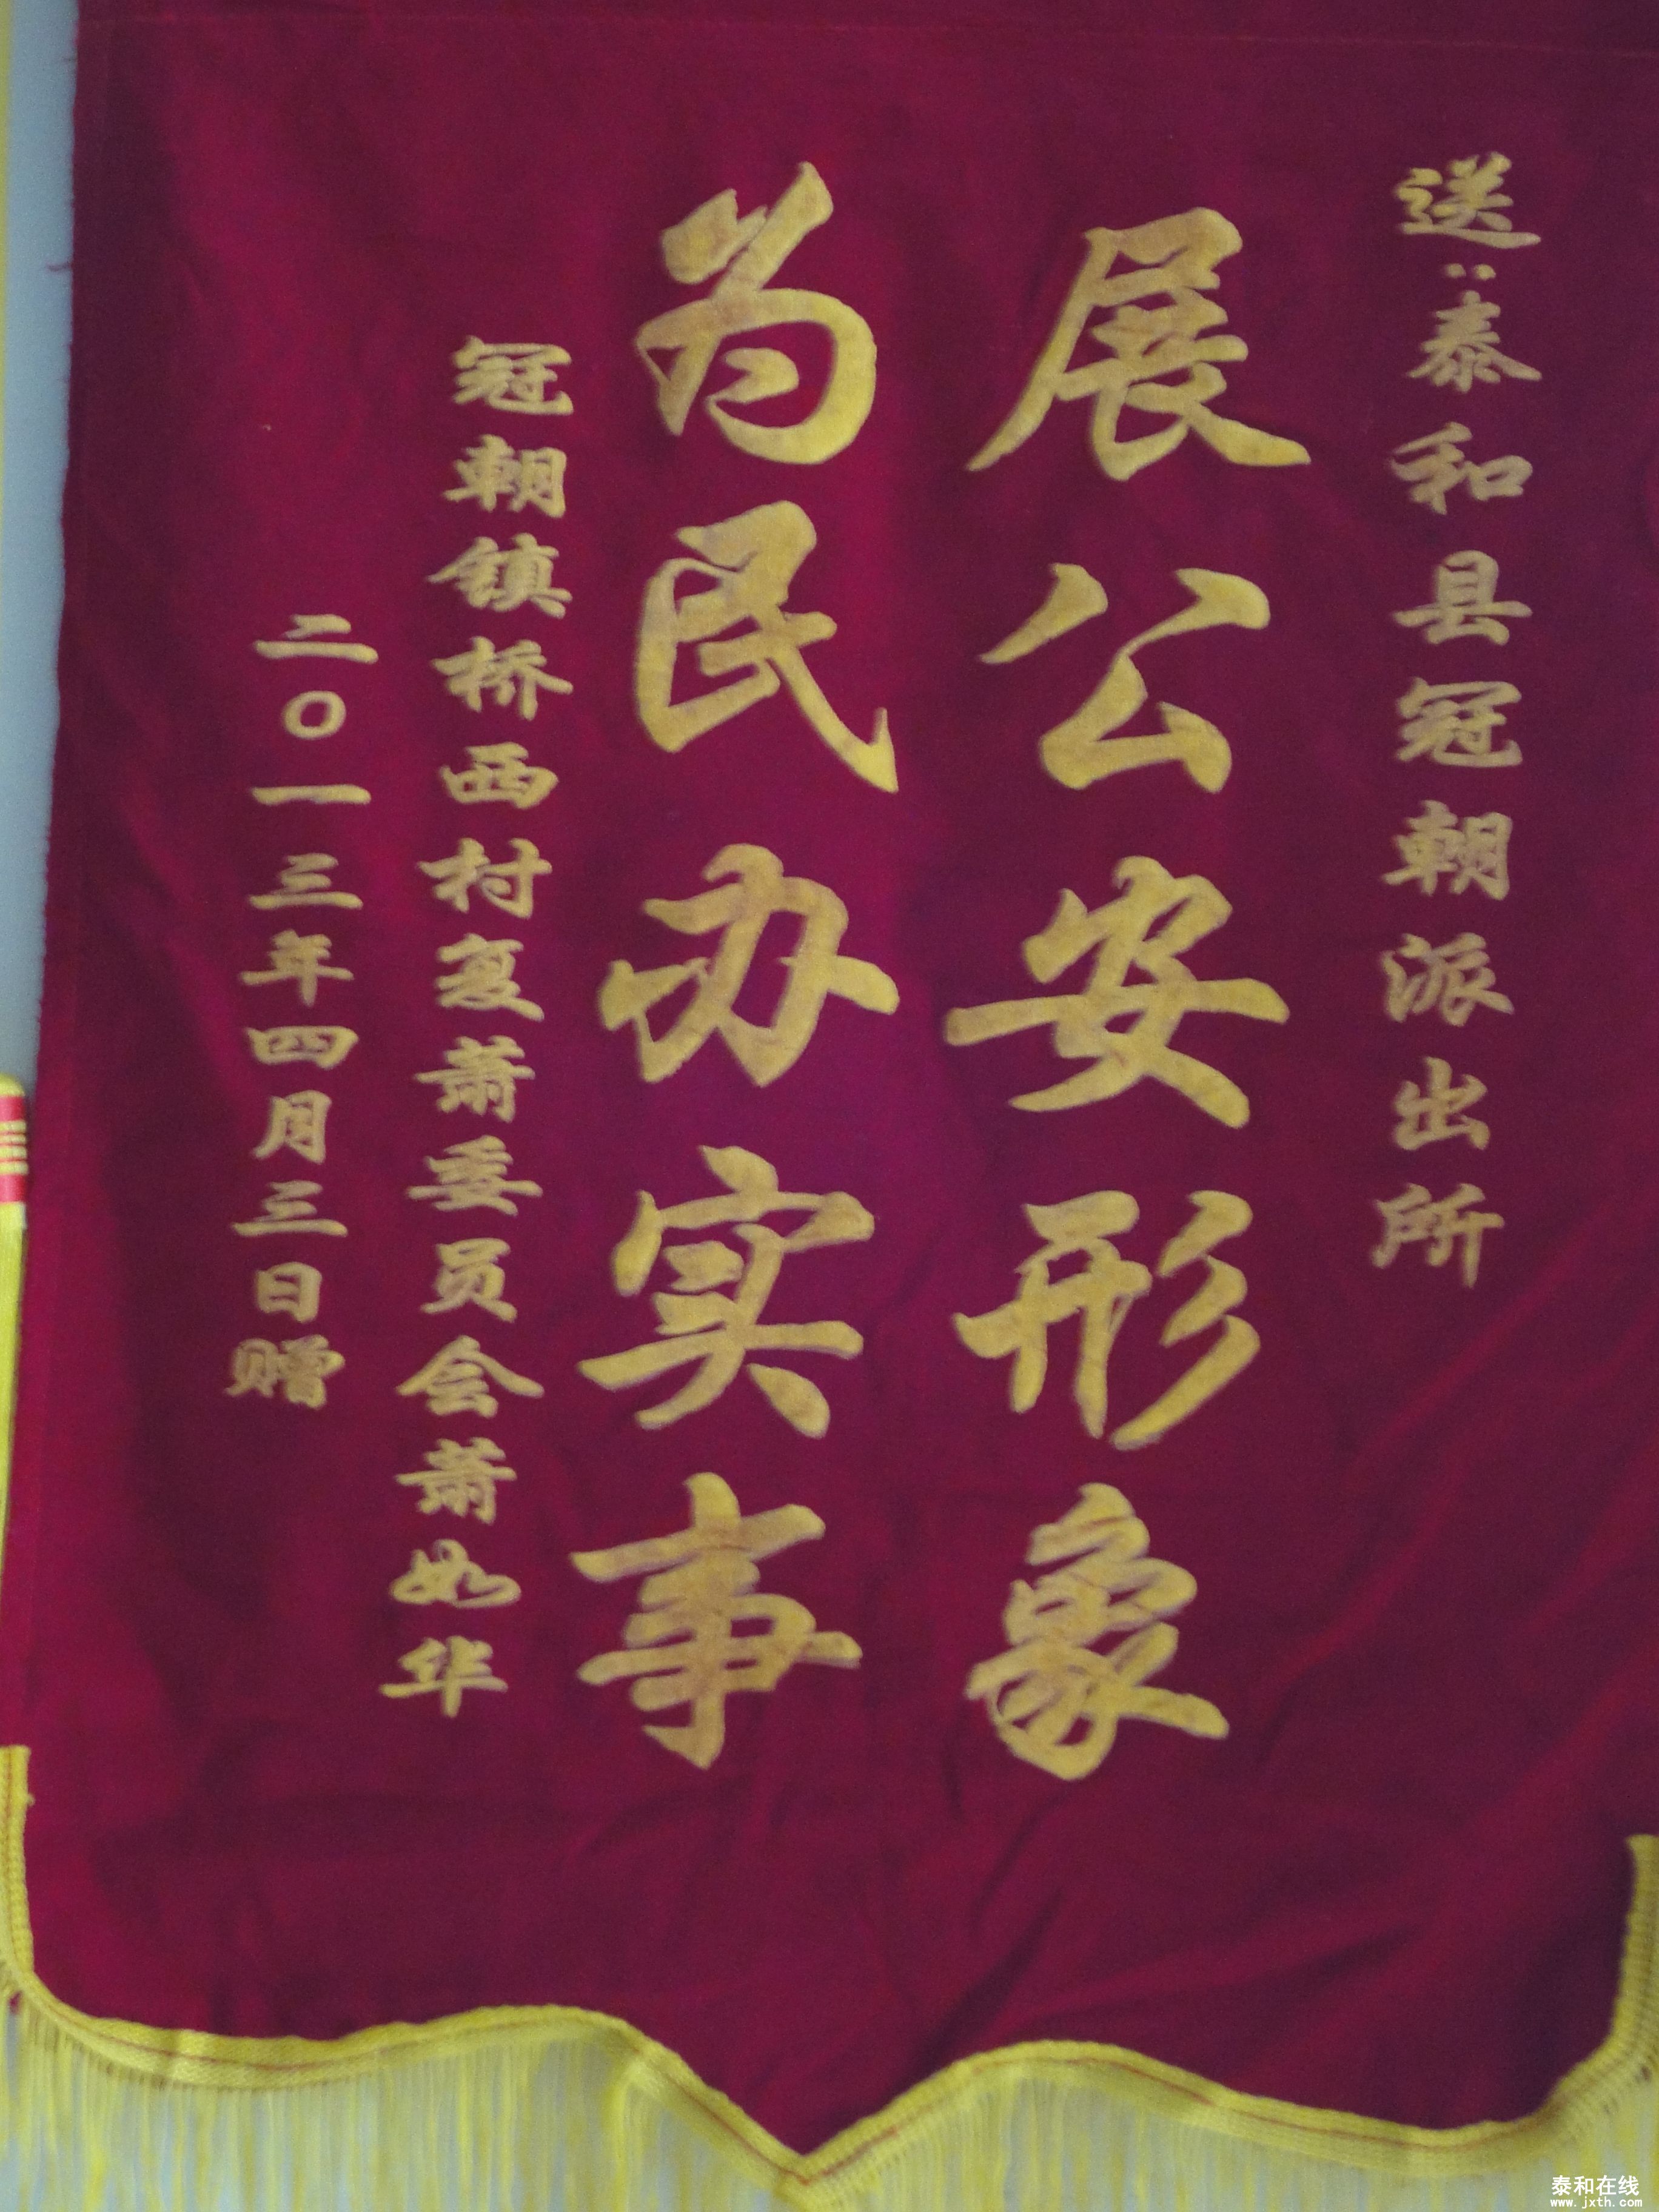 送：泰和县冠朝派出所
展公安形象
为民办实事
冠朝镇桥西村夏萧委员会萧如华
二0一三年四月三日赠
泰和在线
www.jxth.com